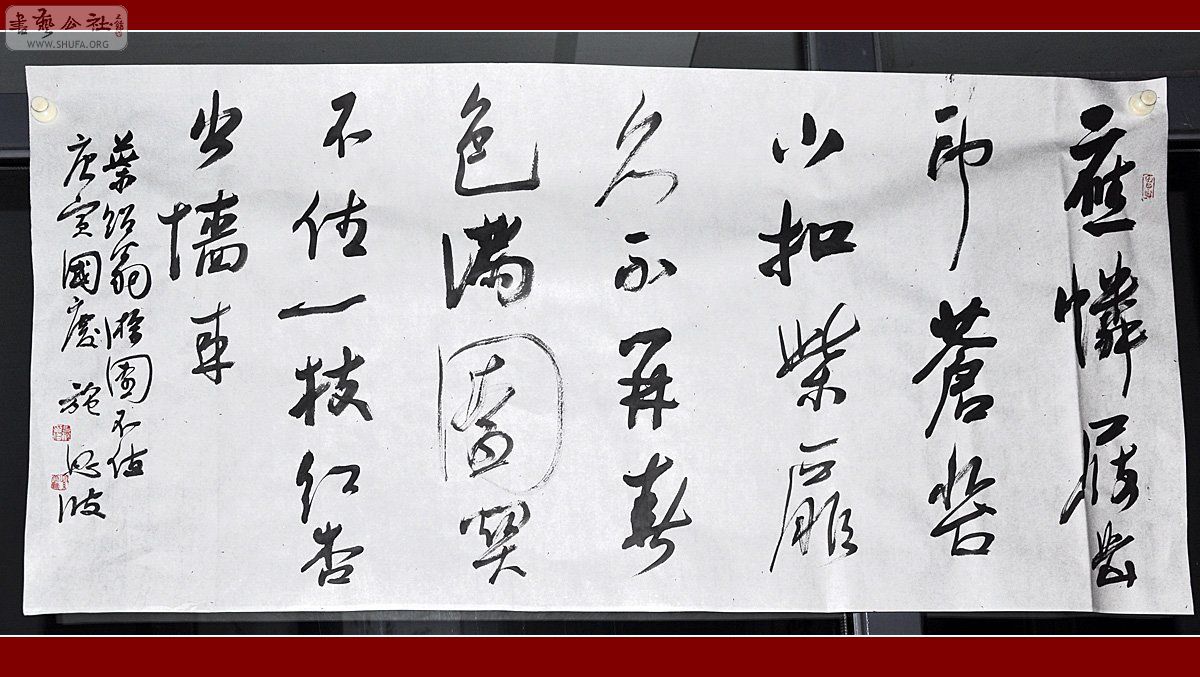 書藝公社
WWW.SHUFA.ORG
應憐屐齒
印蒼苔
小扣柴扉
久不開春
色滿園關
不住一枝紅杏
出墻來
葉紹翁游園不值
庚寅國慶 施恩波